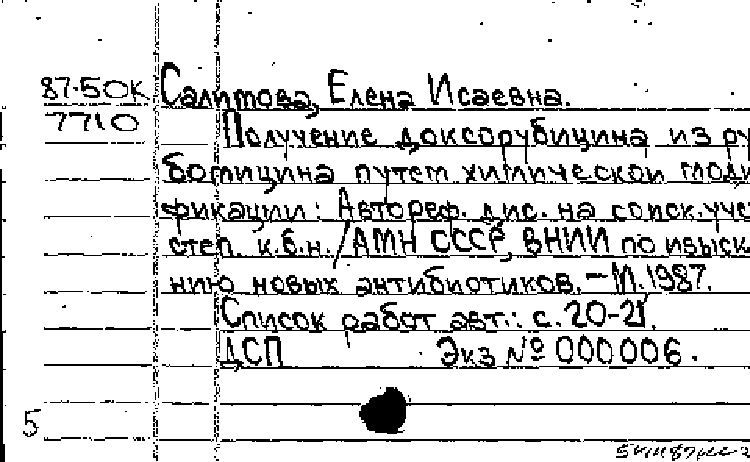 87-50К Салитова, Елена Исаевна.
7710
Получение доксорубицина из ру
бомицина путем химической моди
фикации: Автореф. дис. на соиск. уче
степ. к.б.н. / АМН СССР, ВНИИ по изыска
нию новых антибиотиков. – М. 1987.
Список работ авт.: с. 20-21.
ДСП Экз № 000006.
5